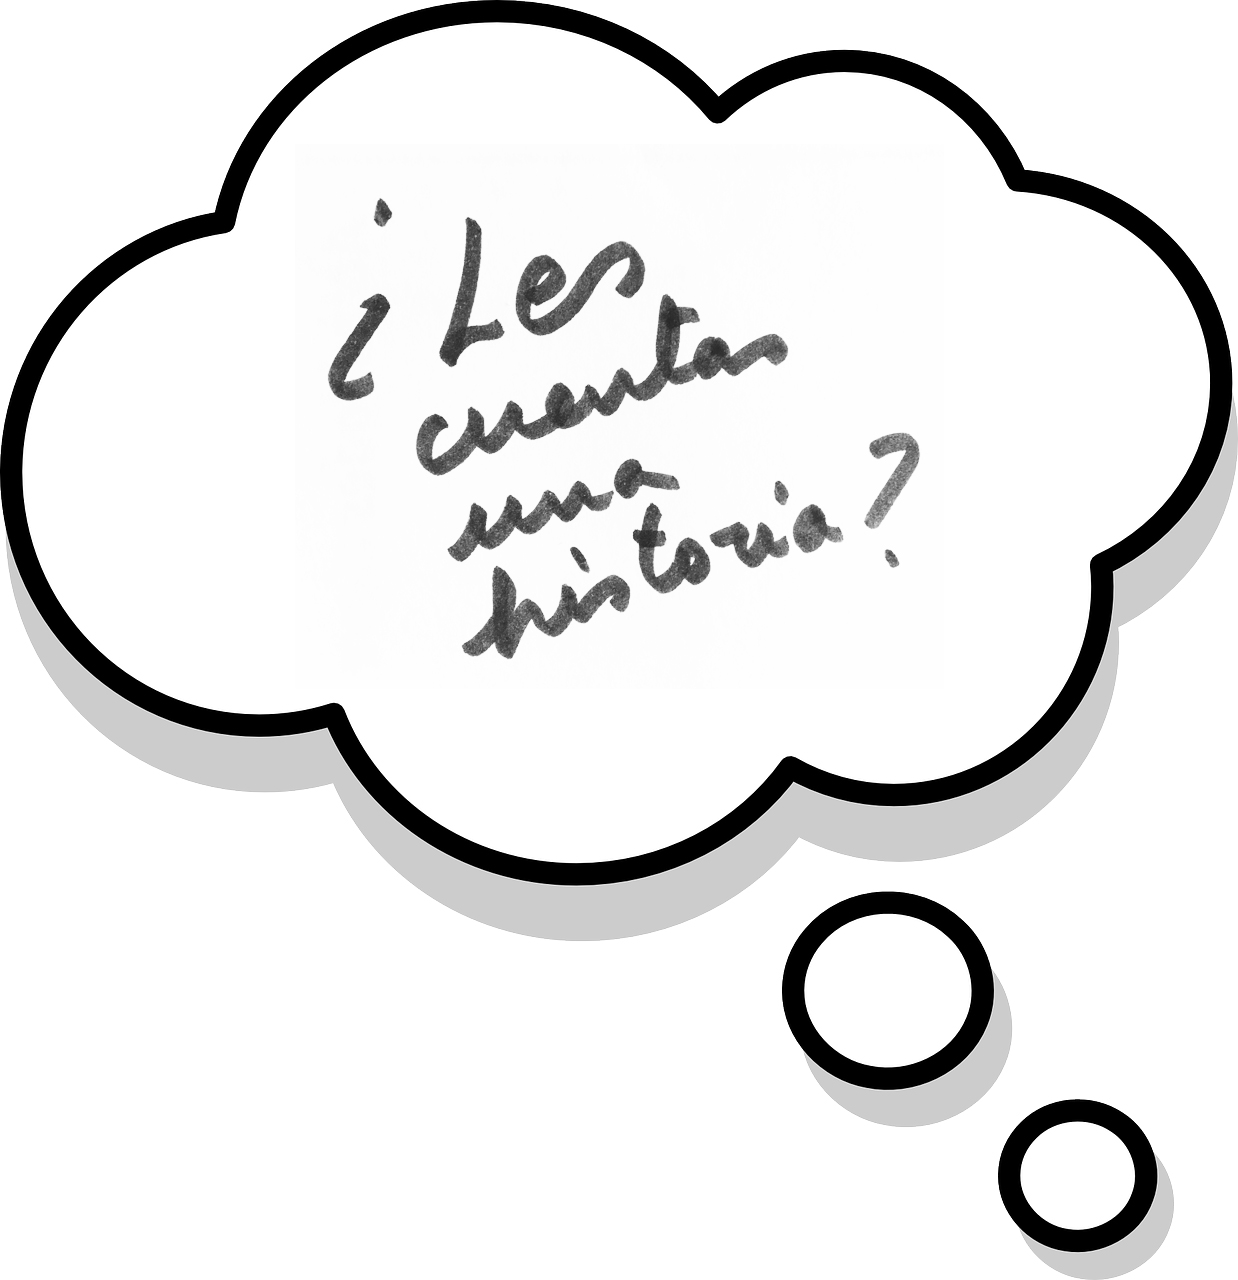 ¿Les
cuentas
una
historia?